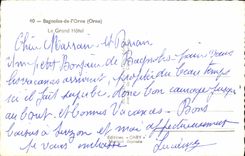 40 - Bagnoles-de-l'Orne (Orne)
Le Grand Hôtel
Cher Marrain et Parrain
Un petit Bonjour de Bagnoles pour vous
les vacances arrivent, profite du beau temps
ici il fait superbe. Donc bon courage jusqu'
au bout. et bonnes Vacances - Bons
baisers à Suzon et moi affectueusement
je vous embrasse
Lucienne